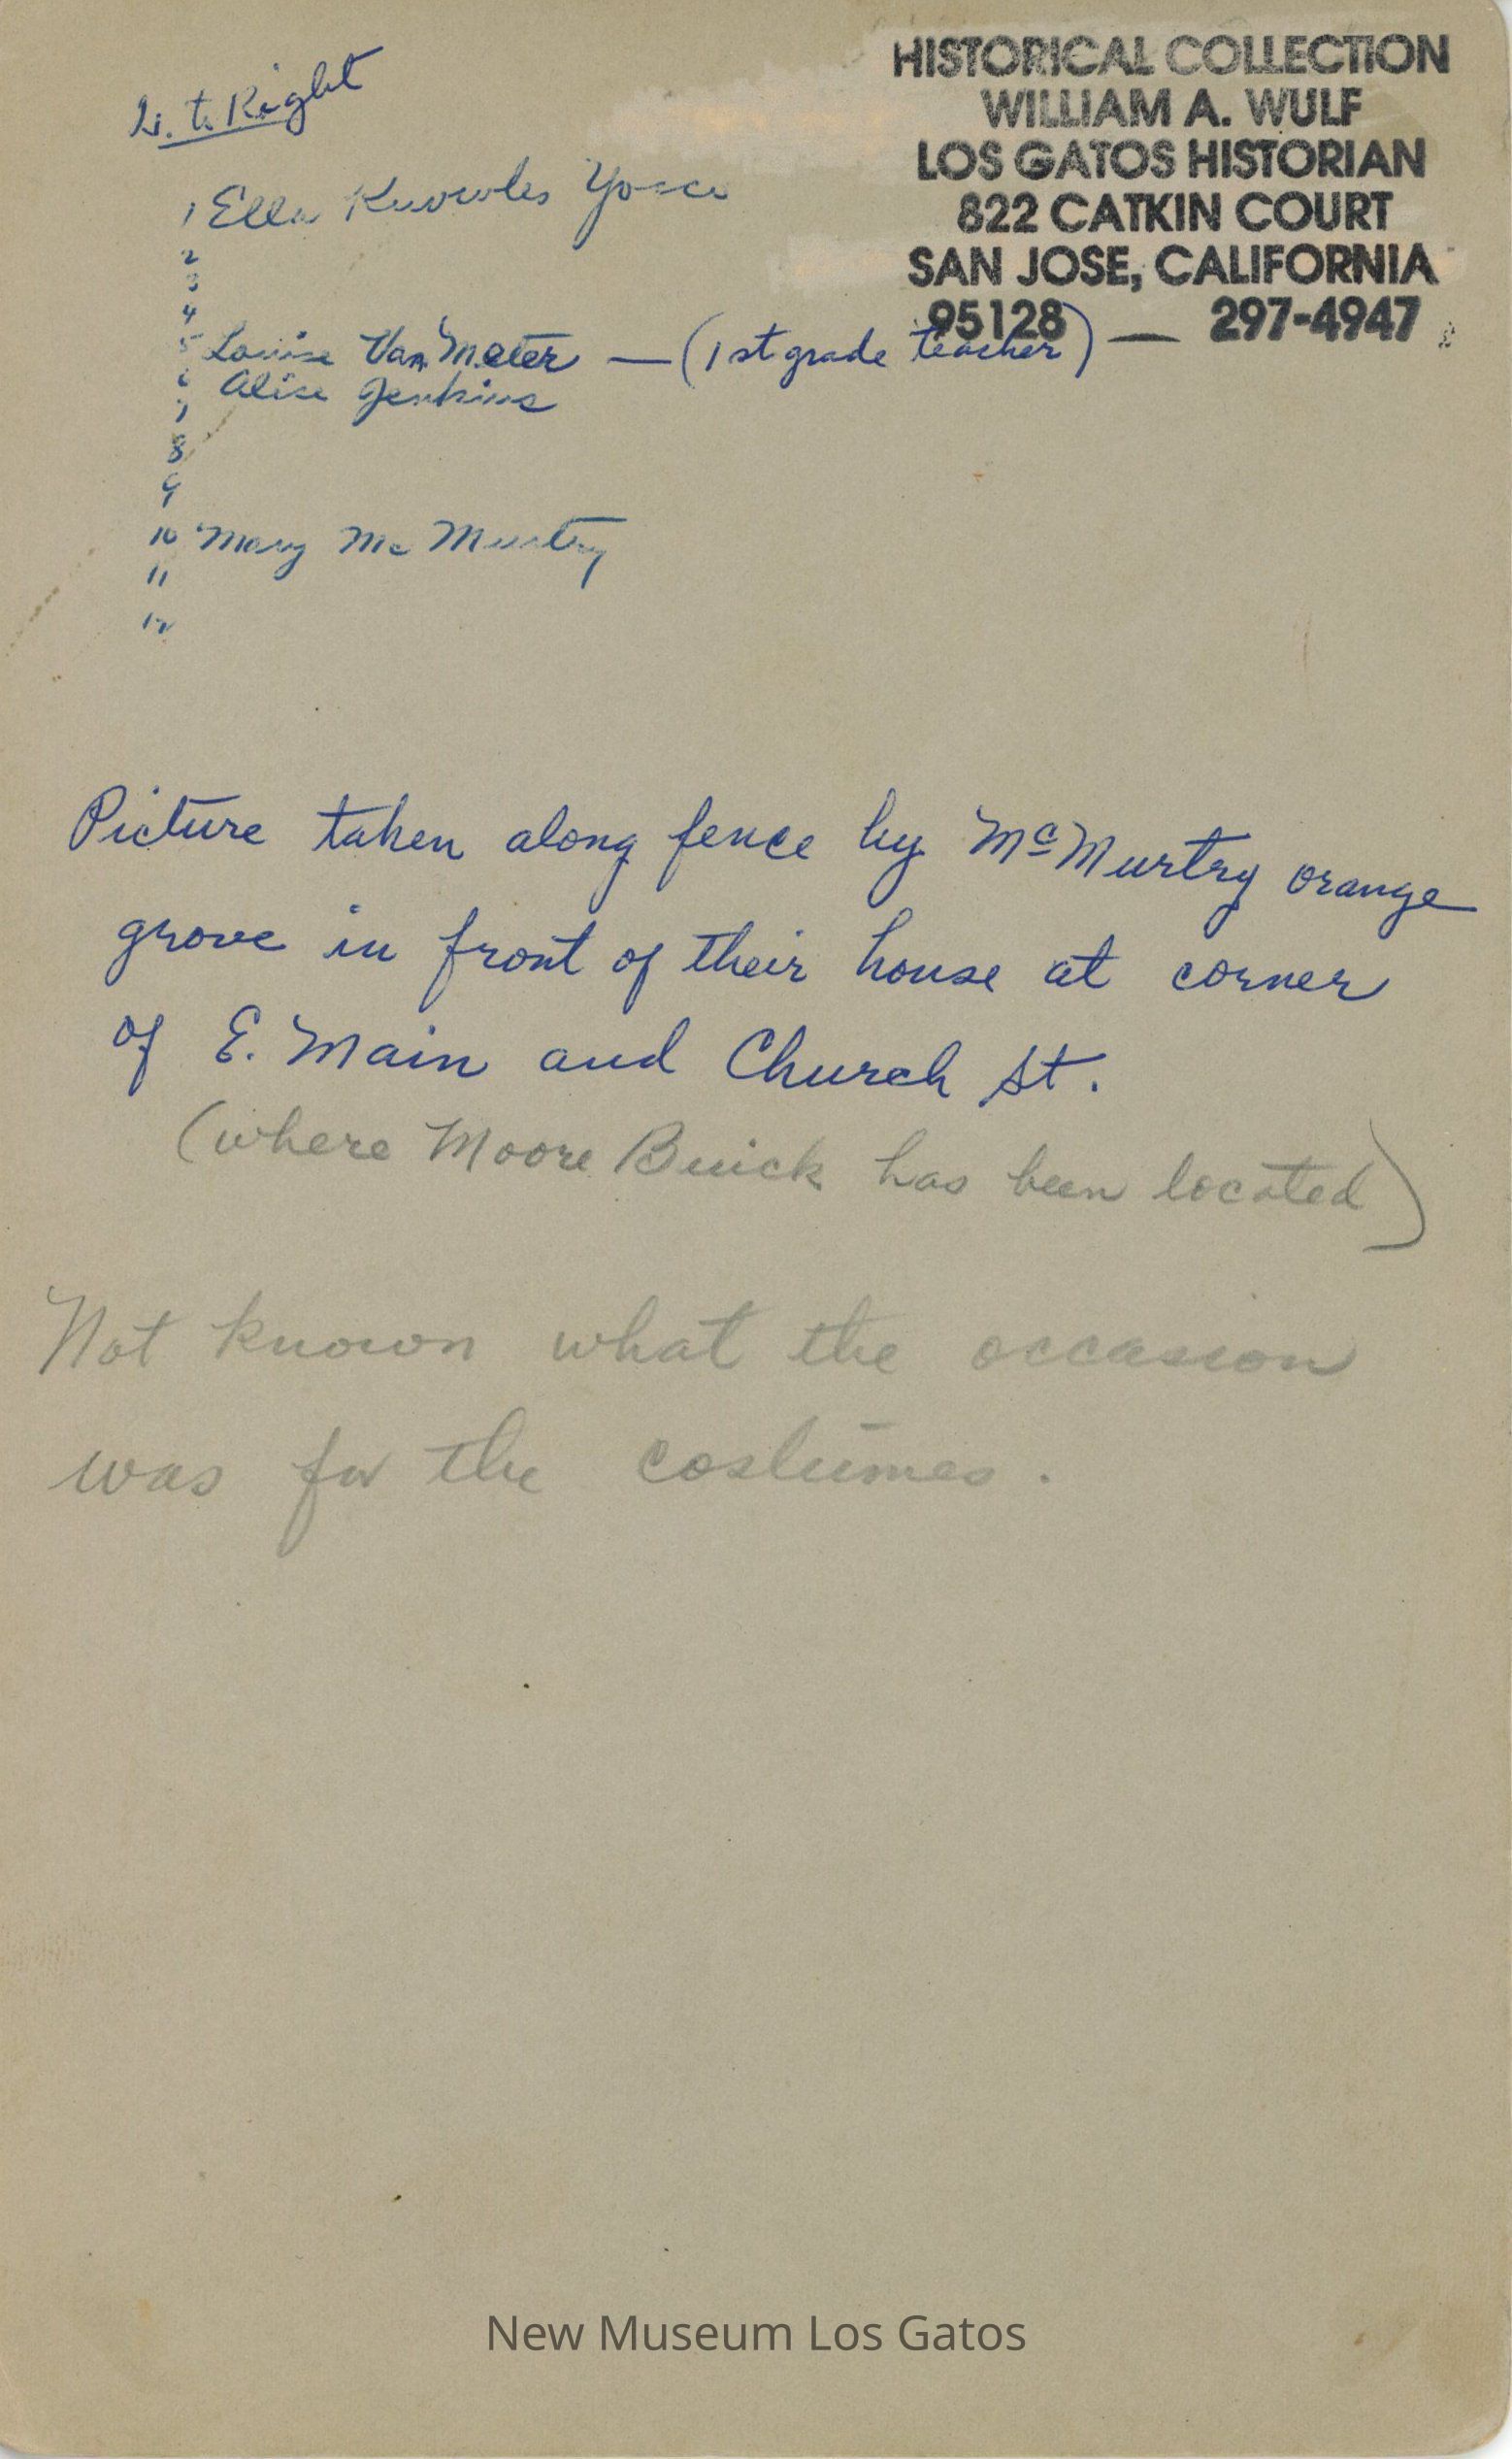 L. to Right
HISTORICAL COLLECTION
WILLIAM A. WULF
LOS GATOS HISTORIAN
822 CATKIN COURT
SAN JOSE, CALIFORNIA
95128 — 297-4947
1 Ella Knowles
2
3
4
5 Louise Van Meter — (1st grade teacher)
6 Alice Jenkins
7
8
9
10 Mary Mc Murtry
11
12
Picture taken along fence by McMurtry orange
grove in front of their house at corner
of E. Main and Church St.
(where Moore Buick has been located)
Not known what the occasion
was for the costumes.
New Museum Los Gatos